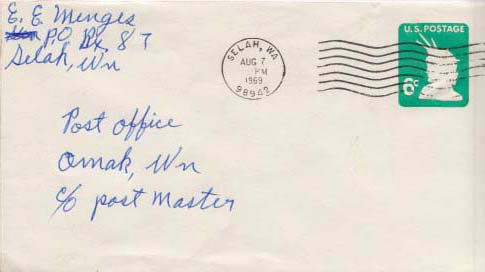 E. E. Menges
P.O Bx, 87
Selah, Wn
SELAH, WA
AUG 7
PM
1969
98942
U.S. POSTAGE
6c
Post office
Omak, Wn
c/o post Master